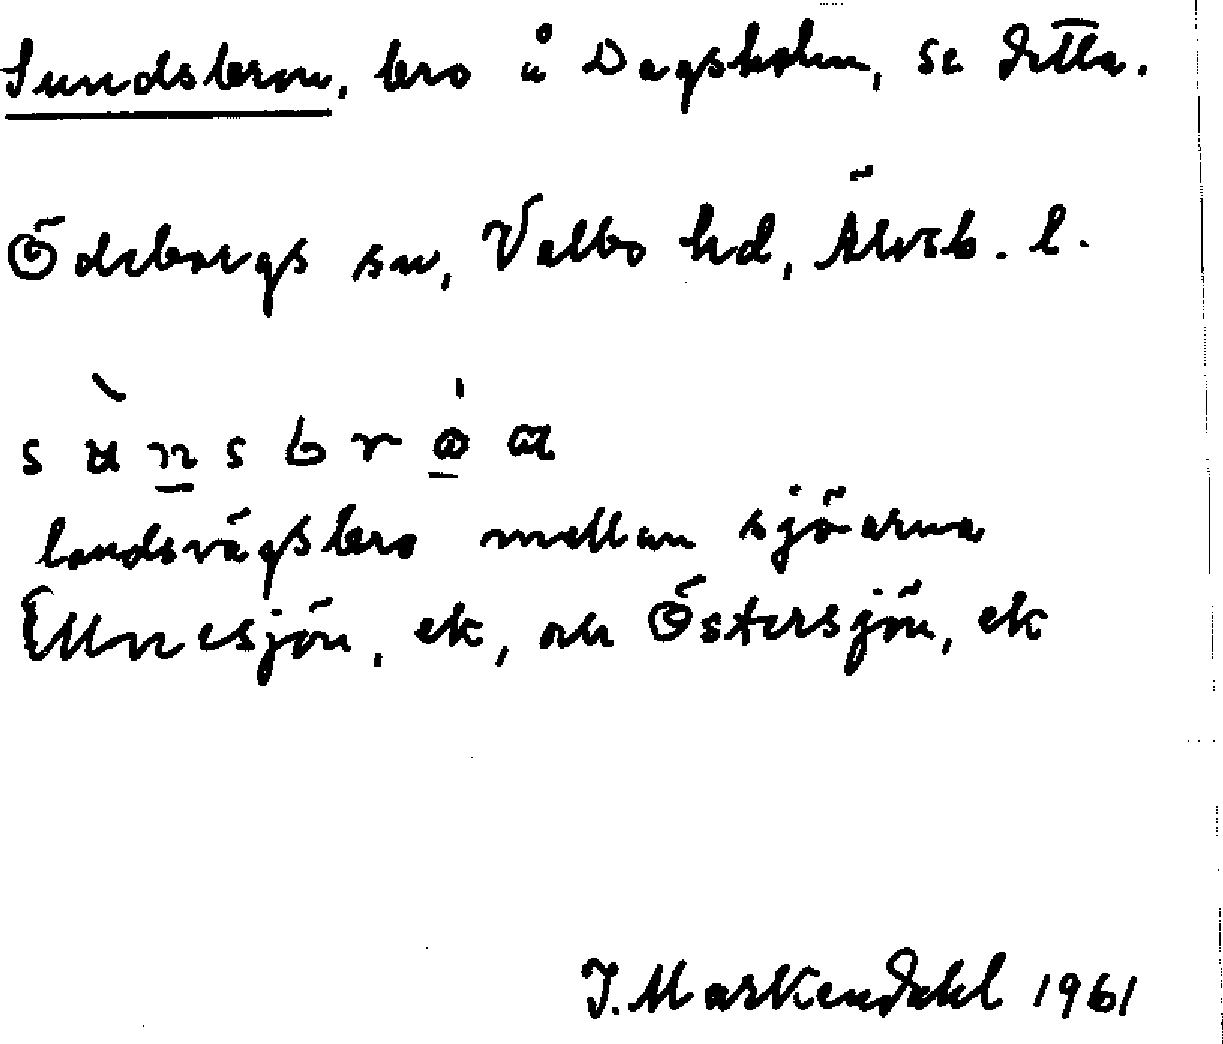 Sundsbron, bro å Dagsholm, se detta.
Ödeborgs sn, Valbo hd, Älvsb. l.
landsvägsbro mellan sjöarna
Ellnesjön, ek, och Östersjön, ek
J. Markendahl 1961